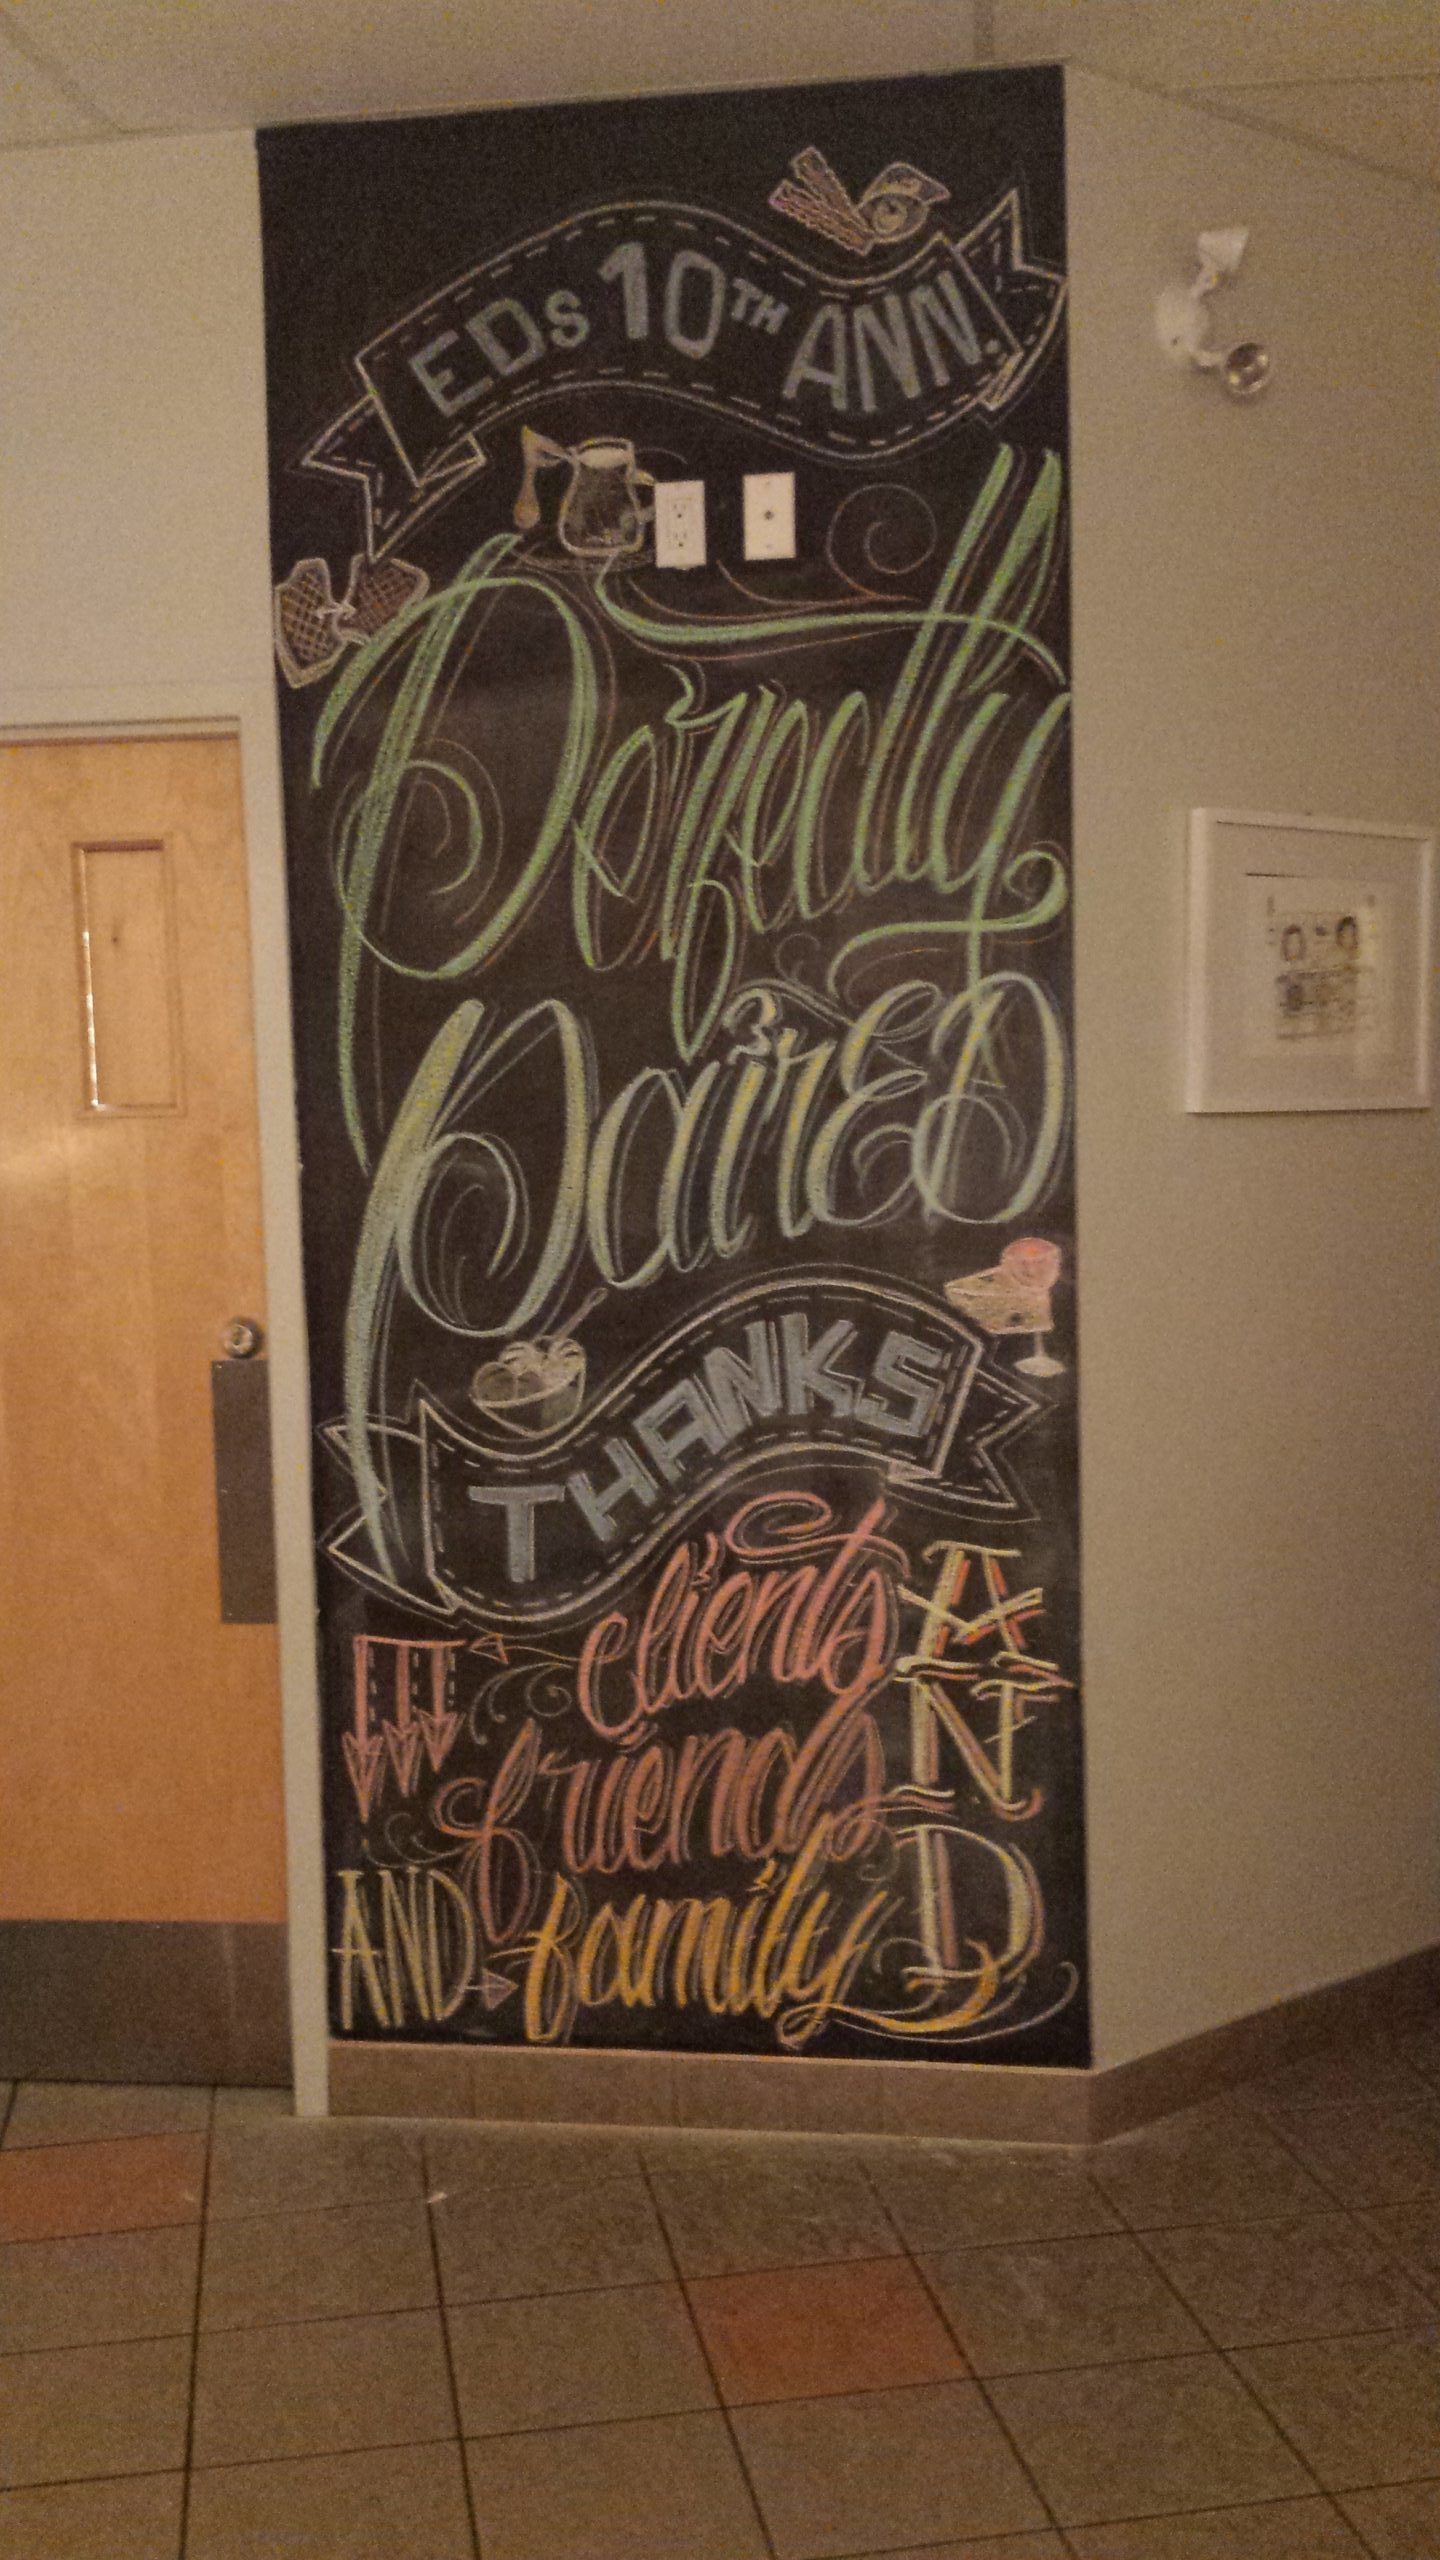 EDs 10TH ANN.
Perfectly
PairED
THANKS
clients
AND
friends
AND family